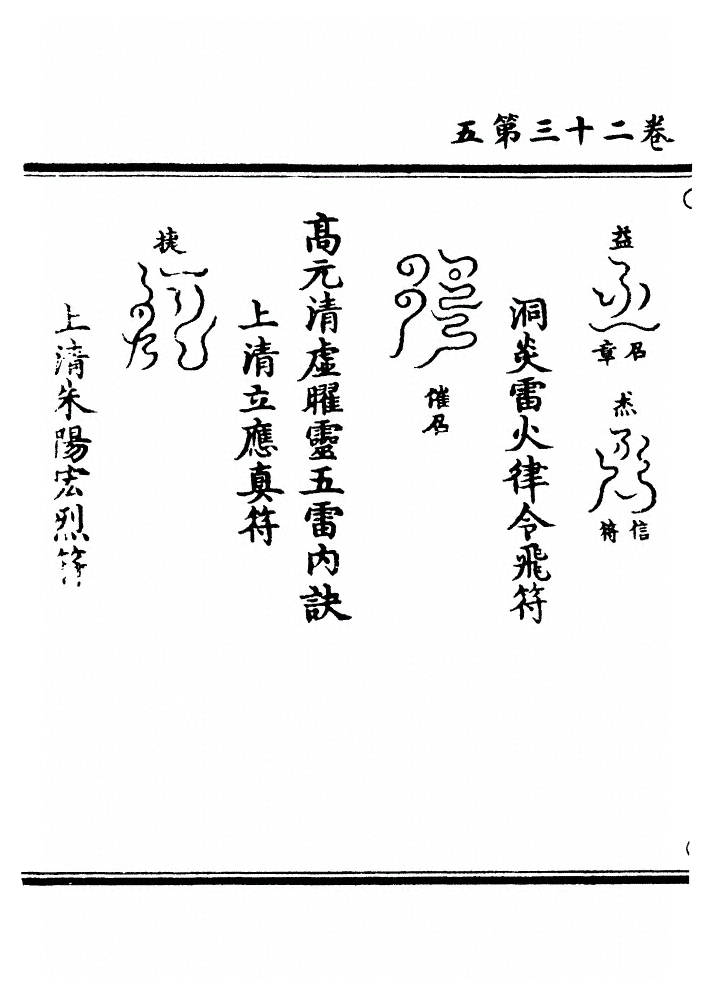 卷二十三第五
益
召章
杰
信符
洞炎雷火律令飛符
催召
高元清虛曜靈五雷內訣
上清立應真符
捷
上清朱陽宏烈符